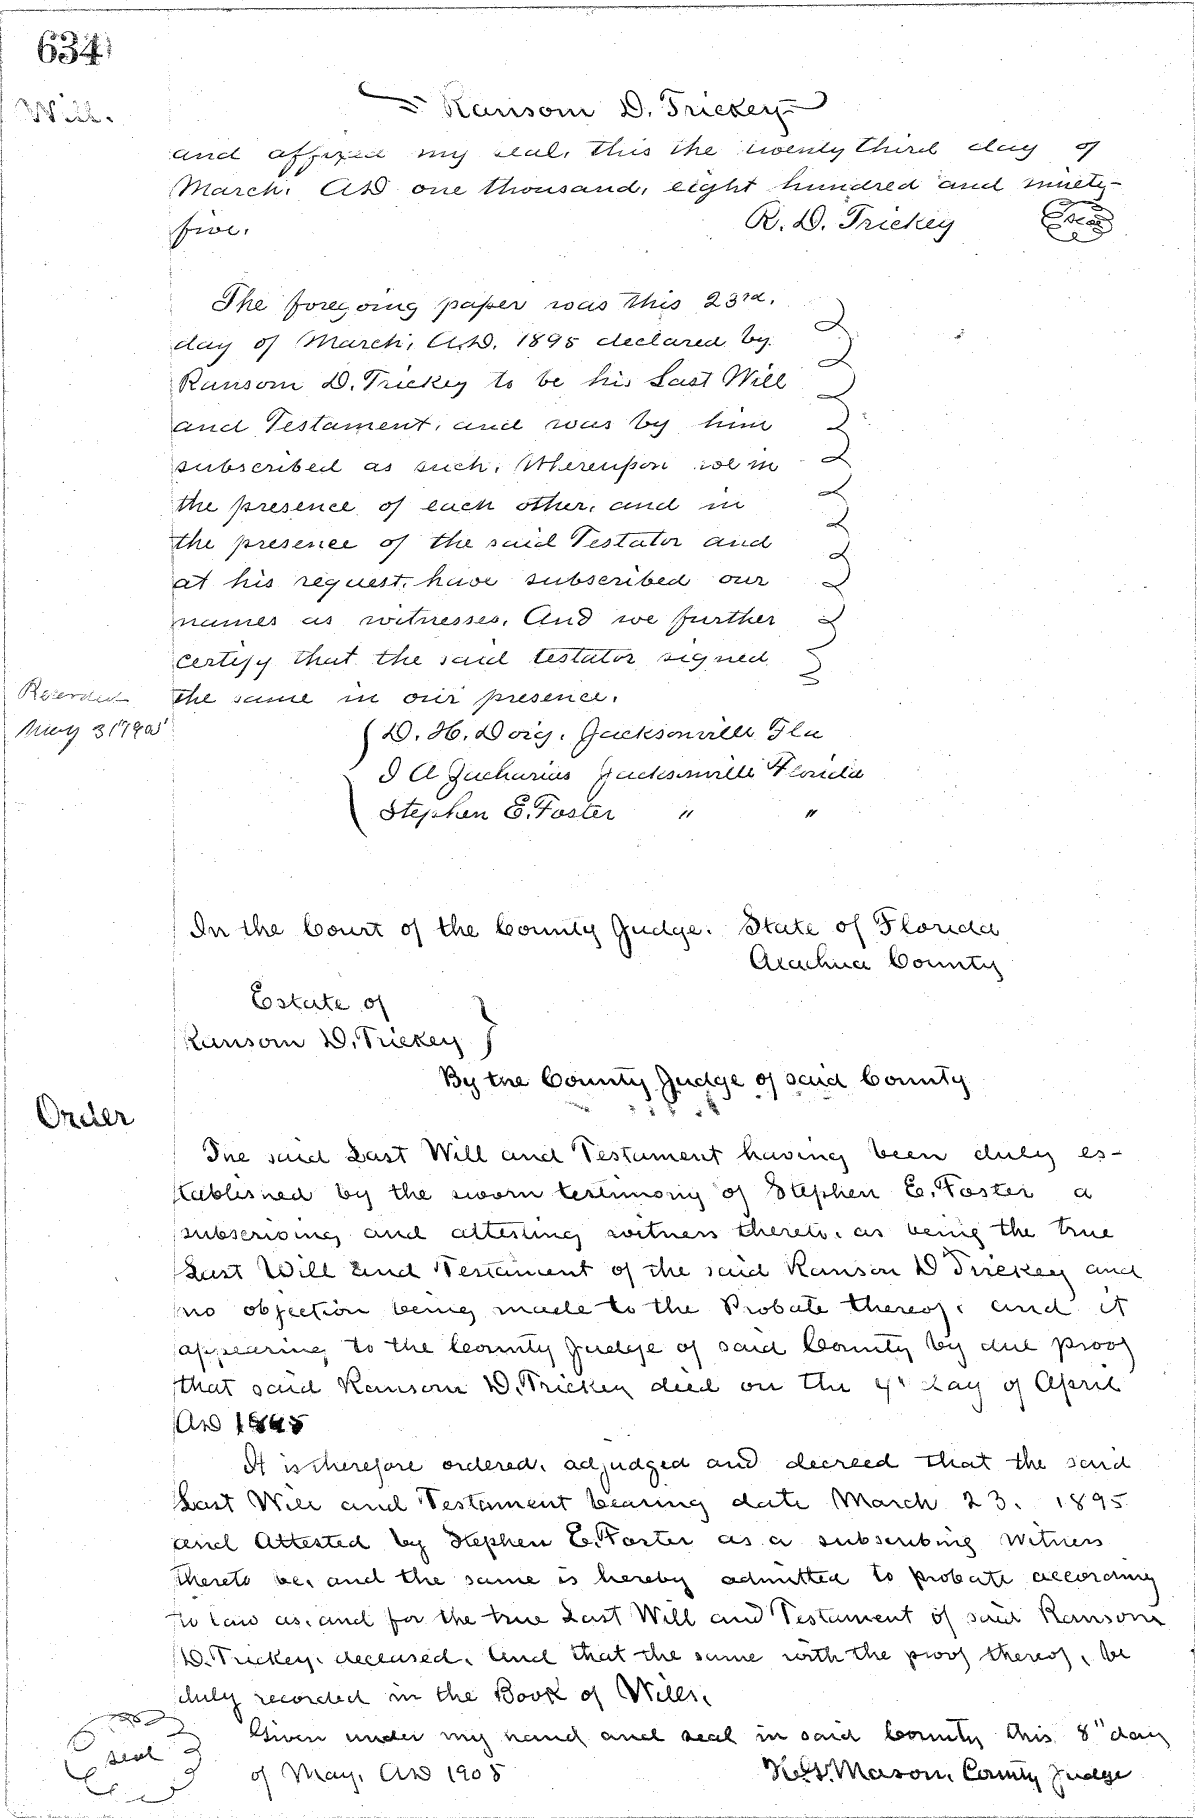 634
Will.
Ransom D. Trickey
and affixed my seal, this the twenty third day of
March, AD one thousand, eight hundred and ninety-
five. R. D. Trickey seal
The foregoing paper was this 23rd.
day of March, A.D. 1895 declared by
Ransom D. Trickey to be his Last Will
and Testament, and was by him
subscribed as such, Whereupon we in
the presence of each other, and in
the presence of the said Testator and
at his request, have subscribed our
names as witnesses, And we further
certify that the said testator signed
Recorded the same in our presence.
May 31 D. H. Doig, Jacksonville Fla
I A Zacharias Jacksonville Florida
Stephen E. Foster " "
In the Court of the County Judge. State of Florida
Alachua County
Estate of
Ransom D. Trickey
By the County Judge of said County
Order
The said Last Will and Testament having been duly es-
tablished by the sworn testimony of Stephen E. Foster a
subscribing and attesting witness thereto, as being the true
Last Will and Testament of the said Ranson D Trickey and
no objection being made to the Probate thereof, and it
appearing to the County Judge of said County by due proof
that said Ransom D. Trickey died on the 4" day of April
AD
It is therefore ordered, adjudged and decreed that the said
Last Will and Testament bearing date March 23. 1895
and Attested by Stephen E. Foster as a subscribing Witness
thereto be, and the same is hereby admitted to probate according
to law as, and for the true Last Will and Testament of said Ransom
D. Trickey, deceased, And that the same with the proof thereof, be
duly recorded in the Book of Wills.
Given under my hand and seal in said County this 8" day
seal of May, AD 1905 H. G. Mason, County Judge